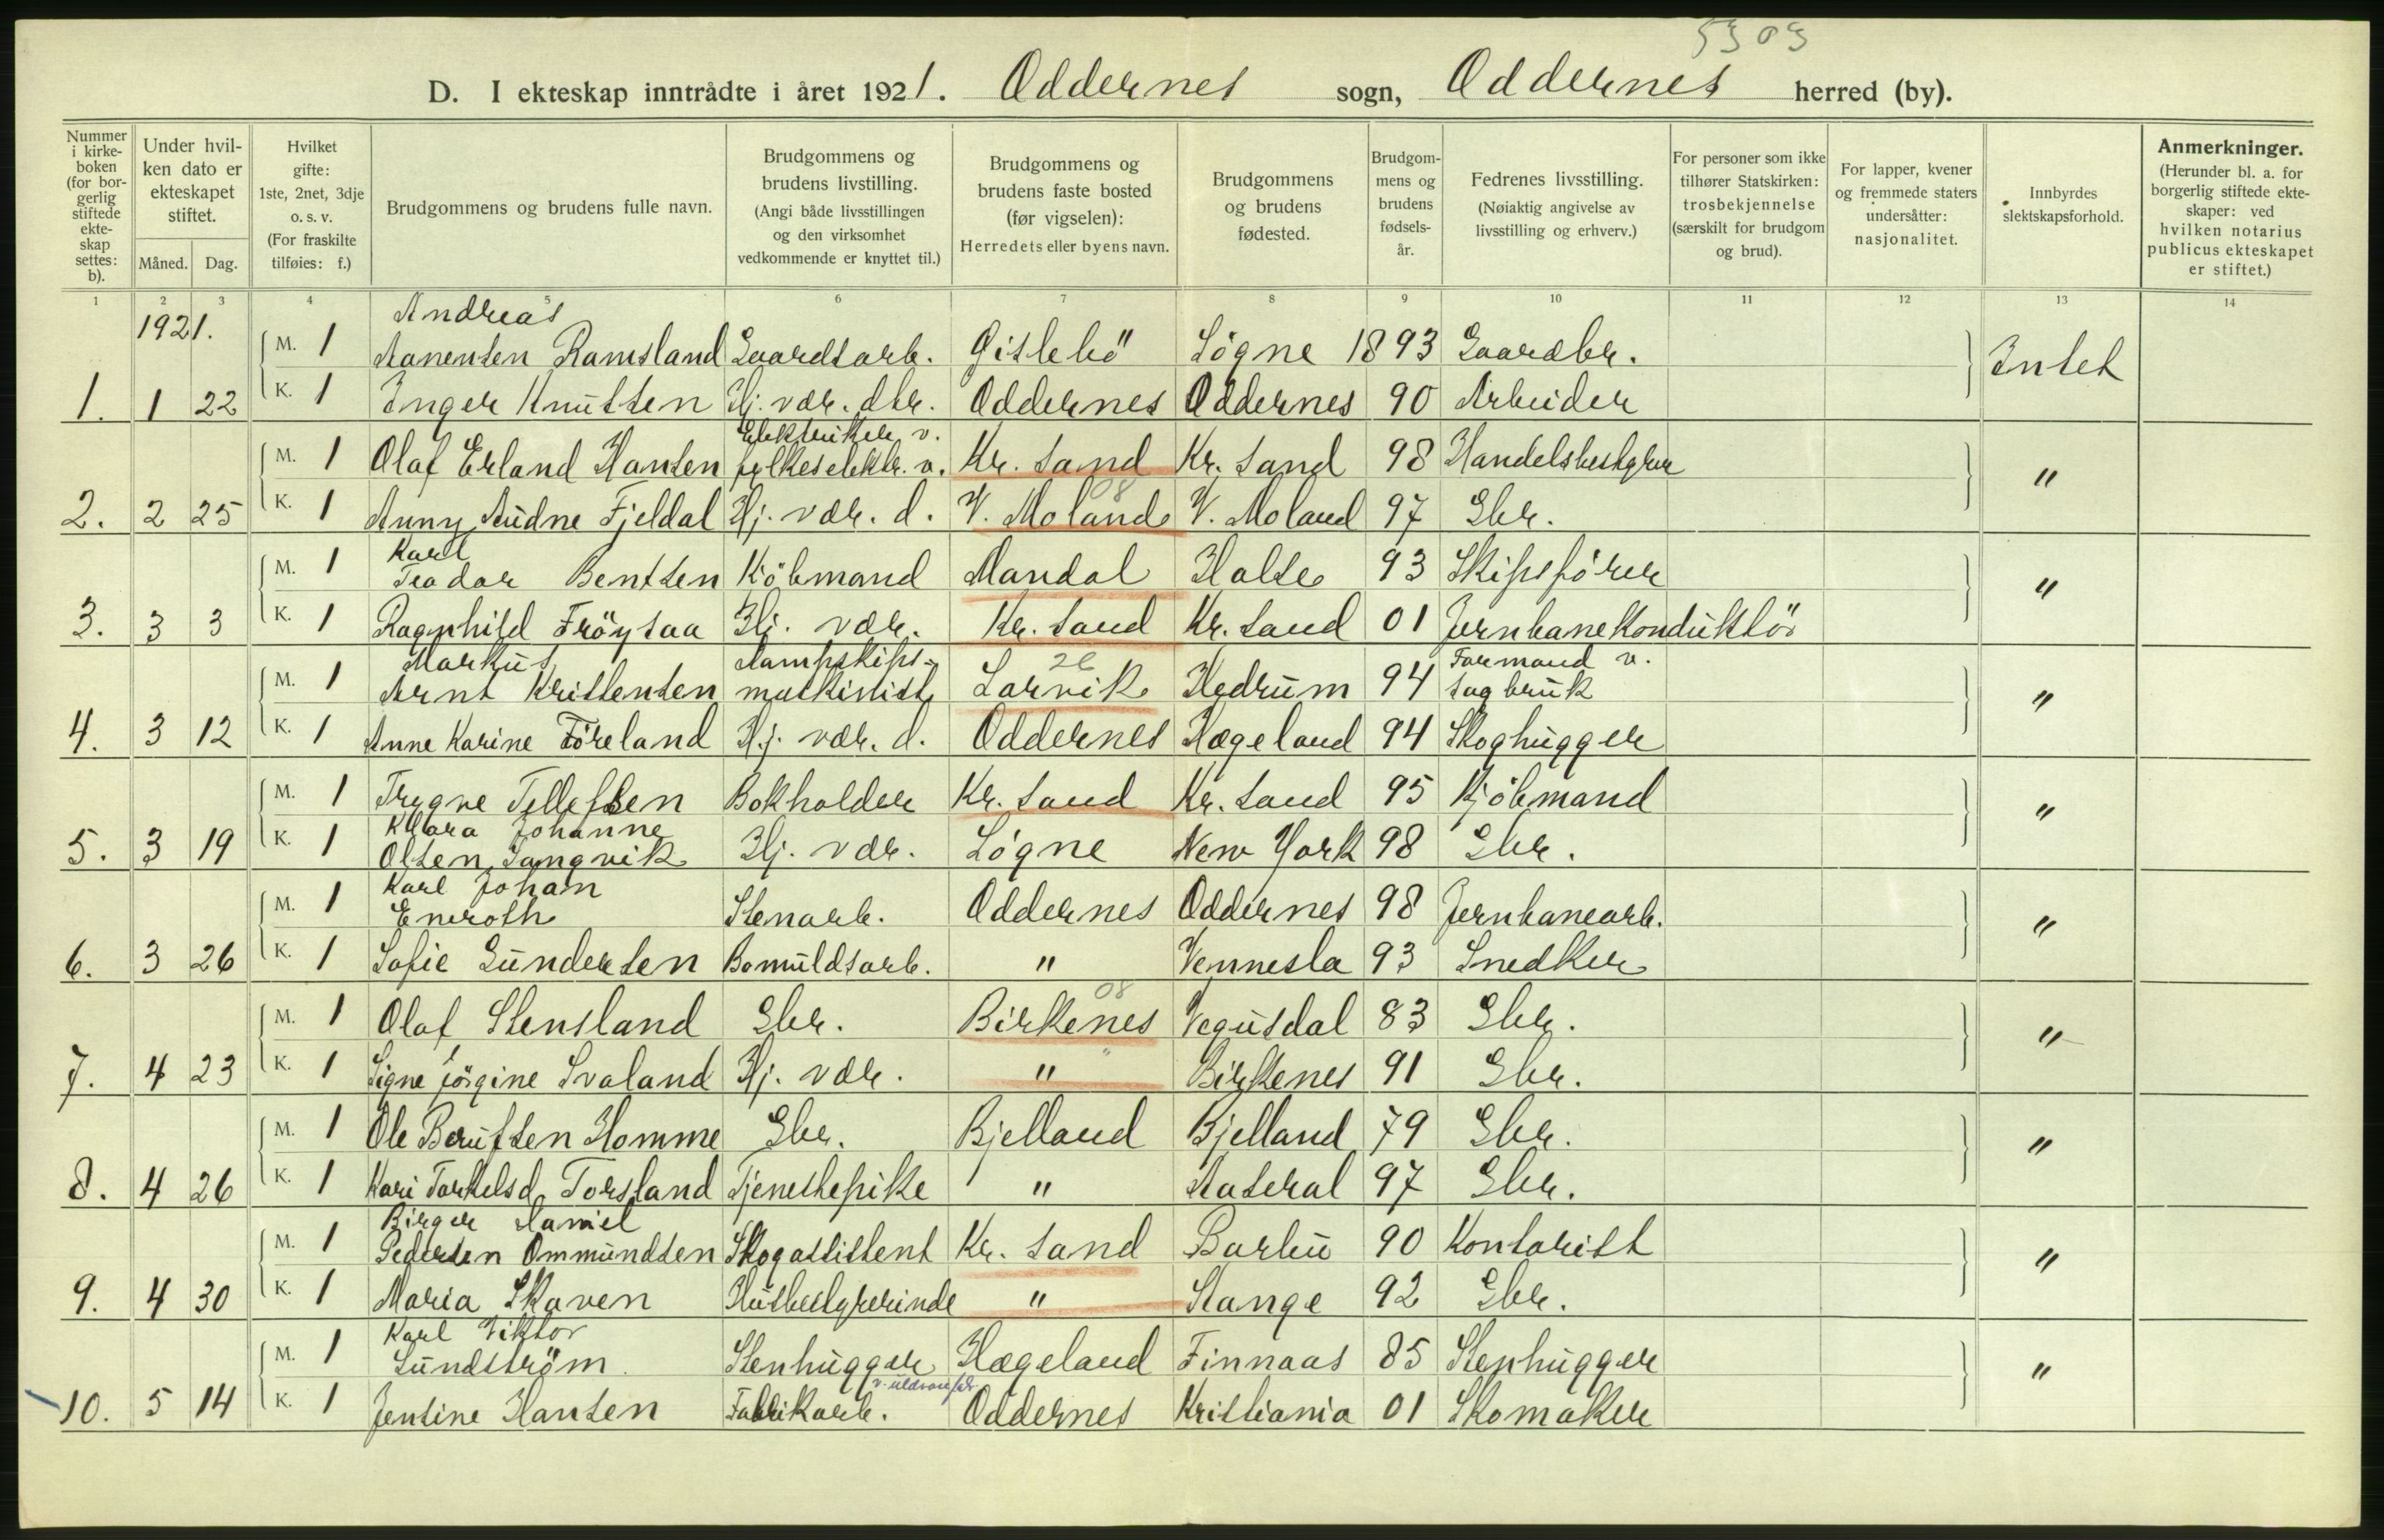 5303
D. I ekteskap inntrådte i året 1921. Oddernes sogn, Oddernes herred (by).
Nummer i kirke-boken (for bor-gerlig stiftede ekte-skap settes: b).
Under hvil-ken dato er ekteskapet stiftet.
Måned. Dag.
Hvilket gifte: 1ste, 2net, 3dje o. s. v. (For fraskilte tilføies: f.)
Brudgommens og brudens fulle navn.
Brudgommens og brudens livstilling. (Angi både livsstillingen og den virksomhet vedkommende er knyttet til.)
Brudgommens og brudens faste bosted (før vigselen): Herredets eller byens navn.
Brudgommens og brudens fødested.
Brudgom-mens og brudens fødsels-år.
Fedrenes livsstilling. (Nøiaktig angivelse av livsstilling og erhverv.)
For personer som ikke tilhører Statskirken: trosbekjennelse (særskilt for brudgom og brud).
For lapper, kvener og fremmede staters undersåtter: nasjonalitet.
Innbyrdes slektskapsforhold.
Anmerkninger. (Herunder bl. a. for borgerlig stiftede ekte-skaper: ved hvilken notarius publicus ekteskapet er stiftet.)
1 2 3 4 5 6 7 8 9 10 11 12 13 14
1921.
Andreas
M. 1 Aanensen Ramsland Gaardsarb. Gislebö Søgne 1893 Gaardbr. Intet
1. 1 22 K. 1 Inger Knutsen Hj. vær. dtr. Oddernes Oddernes 90 Arbeider
Elektriker v.
M. 1 Olaf Erland Hansen fylkeselektr. v. Kr. sand Kr. sand 98 Handelsbestyrer "
08
2. 2 25 K. 1 Anny Audne Fjeldal Hj. vær. d. V. Moland V. Moland 97 Gbr.
Karl
M. 1 Teodor Bentsen Kjöbmand Mandal Halse 93 Skipsfører "
3. 3 3 K. 1 Ragnhild Fröysaa Hj. vær. Kr. sand Kr. sand 01 Jernbanekonduktör
Markus Dampskips- 26 Formand v.
M. 1 Arnt Kristensen maskinist Larvik Hedrum 94 sagbruk "
4. 3 12 K. 1 Anne Karine Föreland Hj. vær. d. Oddernes Hægeland 94 Skoghugger
M. 1 Trygve Tellefsen Bokholder Kr. sand Kr. sand 95 Kjöbmand "
Klara Johanne
5. 3 19 K. 1 Olsen Tangvik Hj. vær. Søgne New York 98 Gbr.
Karl Johan
M. 1 Eneroth Stenarb. Oddernes Oddernes 98 Jernbanearb. "
6. 3 26 K. 1 Sofie Gundersen Bomuldsarb. " Vennesla 93 Snedker
08
M. 1 Olaf Stensland Gbr. Birkenes Vegusdal 83 Gbr. "
7. 4 23 K. 1 Signe Jörgine Svaland Hj. vær. " Birkenes 91 Gbr.
M. 1 Ole Berulfsen Homme Gbr. Bjelland Bjelland 79 Gbr. "
8. 4 26 K. 1 Kari Torkelsd. Torsland Tjenestepike " Aaseral 97 Gbr.
Birger Daniel
M. 1 Pedersen Ommundsen Skogassistent Kr. sand Barbu 90 Kontorist "
9. 4 30 K. 1 Maria Skaven Husbestyrerinde " Stange 92 Gbr.
Karl Viktor
M. 1 Lundström Stenhugger Hægeland Finnaas 85 Stenhugger "
10. 5 14 K. 1 Jensine Hansen Fabrikarb. Oddernes Kristiania 01 Skomaker